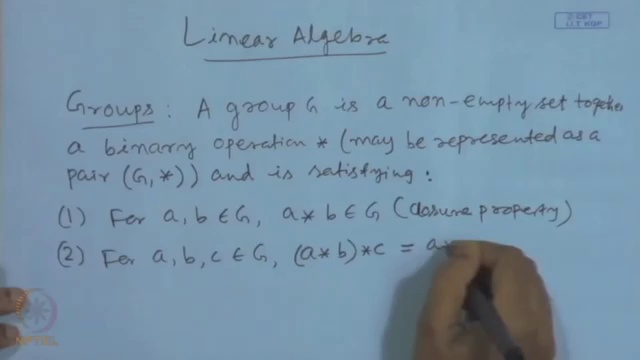 © CET
I.I.T. KGP
Linear Algebra
Groups : A group G is a non-empty set together
a binary operation * (may be represented as a
pair (G, *)) and is satisfying :
(1) For a, b ∈ G, a * b ∈ G (closure property)
(2) For a, b, c ∈ G, (a * b) * c = a *
NPTEL